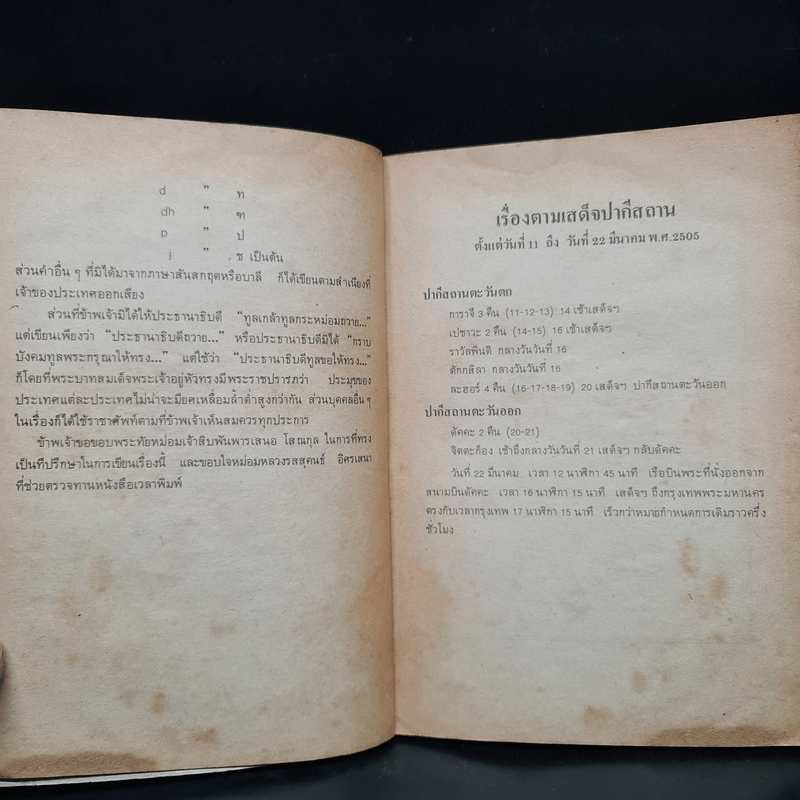 d ” ท
dh ” ฑ
p ” ป
j ” ช เป็นต้น
ส่วนคำอื่น ๆ ที่มิได้มาจากภาษาสันสกฤตหรือบาลี ก็ได้เขียนตามสำเนียงที่
เจ้าของประเทศออกเสียง
ส่วนที่ข้าพเจ้ามิได้ให้ประธานาธิบดี “ทูลเกล้าทูลกระหม่อมถวาย...”
แต่เขียนเพียงว่า “ประธานาธิบดีถวาย...” หรือประธานาธิบดีมิได้ “กราบ
บังคมทูลพระกรุณาให้ทรง...” แต่ใช้ว่า “ประธานาธิบดีทูลขอให้ทรง...”
ก็โดยที่พระบาทสมเด็จพระเจ้าอยู่หัวทรงมีพระราชปรารภว่า ประมุขของ
ประเทศแต่ละประเทศไม่น่าจะมียศเหลื่อมล้ำต่ำสูงกว่ากัน ส่วนบุคคลอื่น ๆ
ในเรื่องก็ได้ใช้ราชาศัพท์ตามที่ข้าพเจ้าเห็นสมควรทุกประการ
ข้าพเจ้าขอขอบพระทัยหม่อมเจ้าสิบพันพารเสนอ โสณกุล ในการที่ทรง
เป็นที่ปรึกษาในการเขียนเรื่องนี้ และขอบใจหม่อมหลวงรสสุคนธ์ อิศรเสนา
ที่ช่วยตรวจทานหนังสือเวลาพิมพ์
เรื่องตามเสด็จปากีสถาน
ตั้งแต่วันที่ 11 ถึง วันที่ 22 มีนาคม พ.ศ.2505
ปากีสถานตะวันตก
การาจี 3 คืน (11-12-13) 14 เช้าเสด็จฯ
เปชาวะ 2 คืน (14-15) 16 เช้าเสด็จฯ
ราวัลพินดิ กลางวันวันที่ 16
ตักกสิลา กลางวันวันที่ 16
ละฮอร์ 4 คืน (16-17-18-19) 20 เสด็จฯ ปากีสถานตะวันออก
ปากีสถานตะวันออก
ดัคคะ 2 คืน (20-21)
จิตตะก็อง เช้าถึงกลางวันวันที่ 21 เสด็จฯ กลับดัคคะ
วันที่ 22 มีนาคม เวลา 12 นาฬิกา 45 นาที เรือบินพระที่นั่งออกจาก
สนามบินดัคคะ เวลา 16 นาฬิกา 15 นาที เสด็จฯ ถึงกรุงเทพพระมหานคร
ตรงกับเวลากรุงเทพ 17 นาฬิกา 15 นาที เร็วกว่าหมายกำหนดการเดิมราวครึ่ง
ชั่วโมง